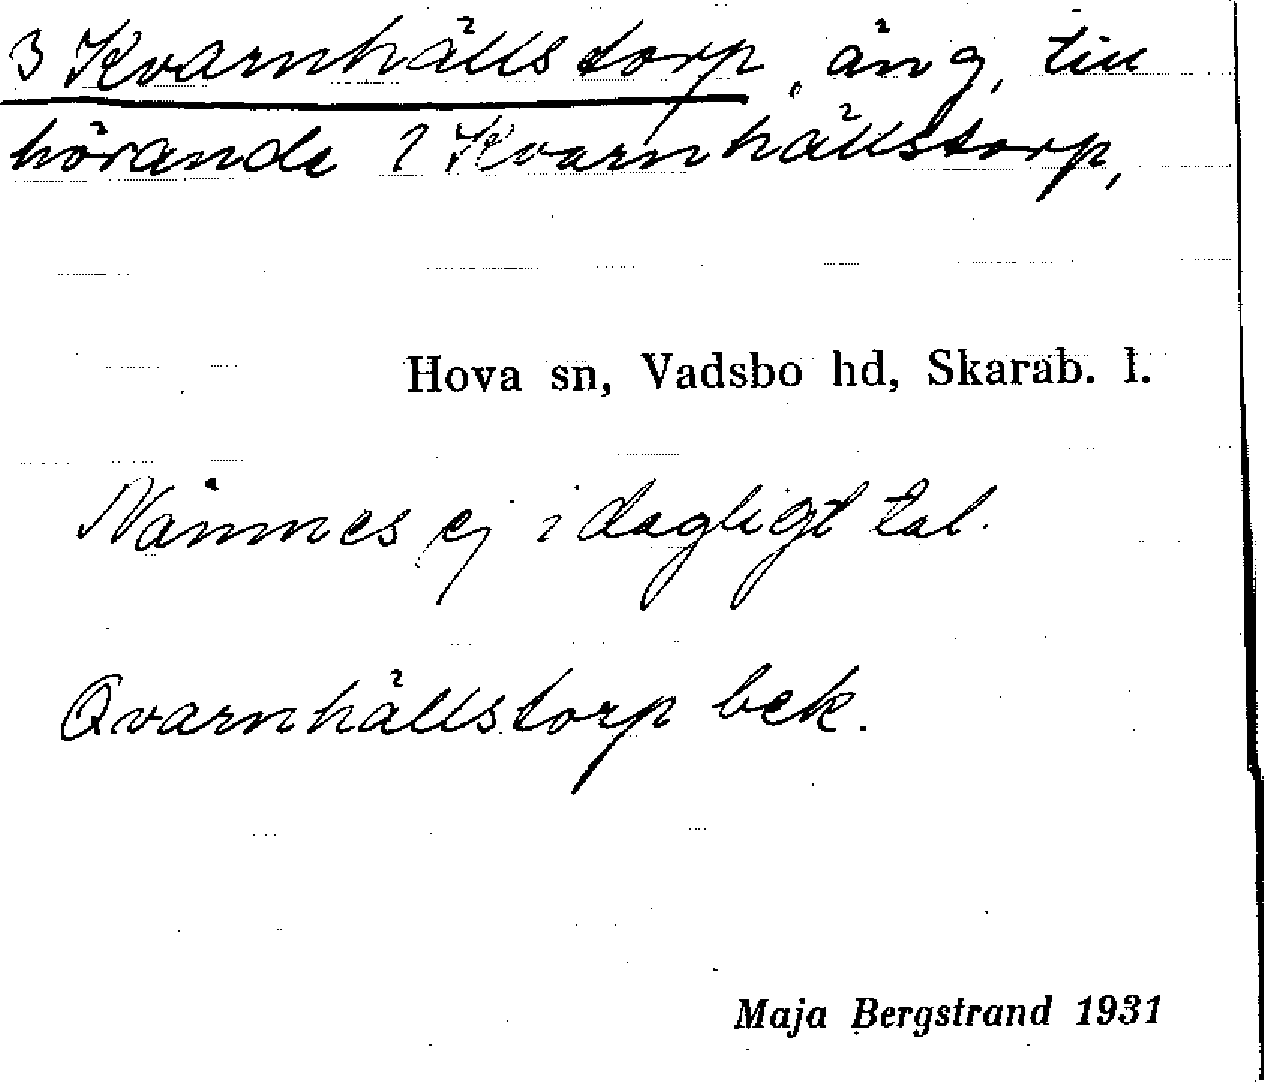 3 Kvarnhällstorp, äng, till
hörande 1 Kvarnhällstorp,
Hova sn, Vadsbo hd, Skarab. l.
Nämnes ej i dagligt tal.
Qvarnhällstorp bek.
Maja Bergstrand 1931